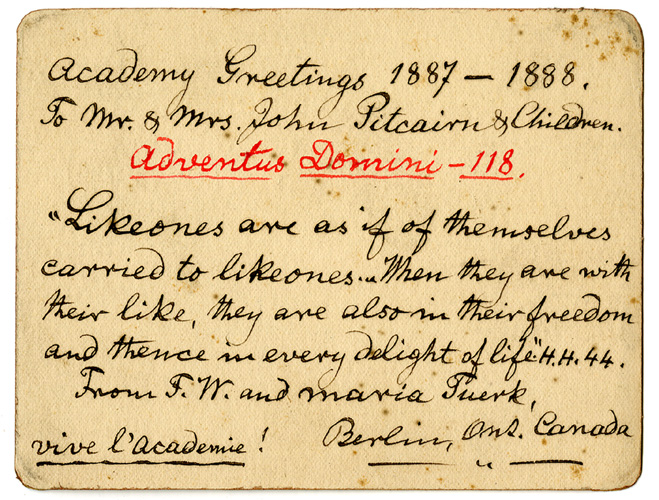 Academy Greetings 1887 – 1888.
To Mr. & Mrs. John Pitcairn & Children.
Adventus Domini – 118.
"Likeones are as if of themselves
carried to likeones... When they are with
their like, they are also in their freedom
and thence in every delight of life". H.H. 44.
From F. W. and Maria Tuerk,
Berlin, Ont. Canada
vive l'Academie!